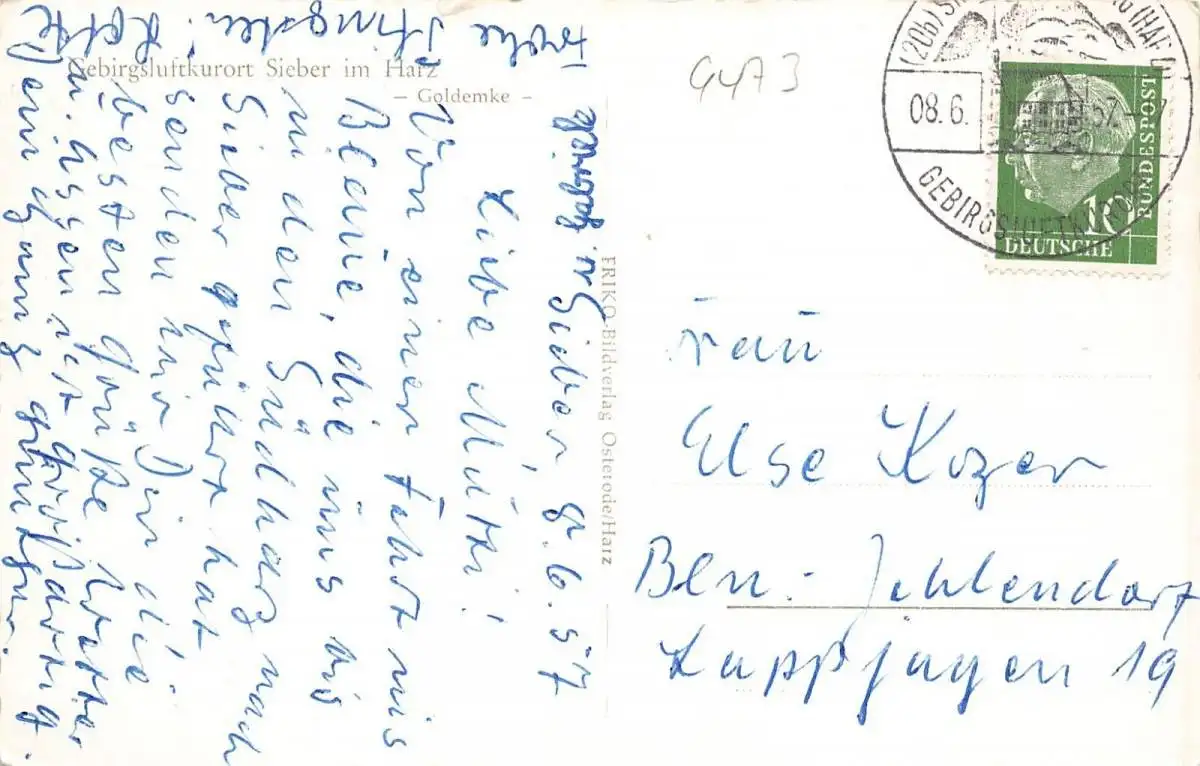 Gebirgsluftkurort Sieber im Harz
– Goldemke –
Sieber, 8.6.57
Liebe Mutti!
Von einer Fahrt ins
Blaue, die uns bis
in den Südharz nach
Sieber geführt hat
senden wir Dir die
besten Grüße. Wetter
u. Essen ist großartig.
Frohe Pfingsten!
FRIKO-Bildverlag Osterode/Harz
9473
08.6. 57
GEBIRGSLUFTKURORT
10
DEUTSCHE
BUNDESPOST
Frau
Else Kozer
Bln.-Zehlendorf
Lappjagen 19